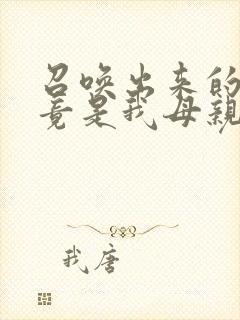 召唤出来的
竟是我母親
我唐